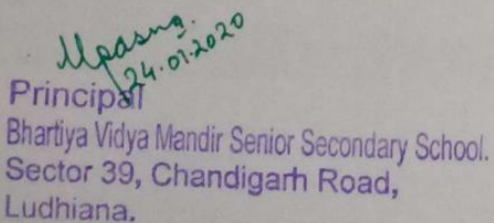 Upasna.
24.01.2020
Principal
Bhartiya Vidya Mandir Senior Secondary School.
Sector 39, Chandigarh Road,
Ludhiana.